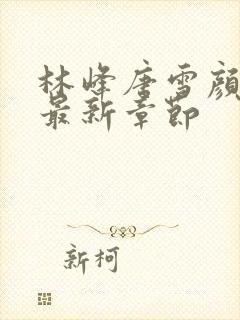 林峰唐雪顏
最新章節
新柯